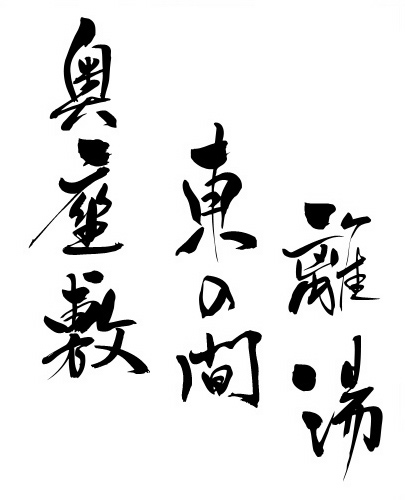 離湯
東の間
奥座敷